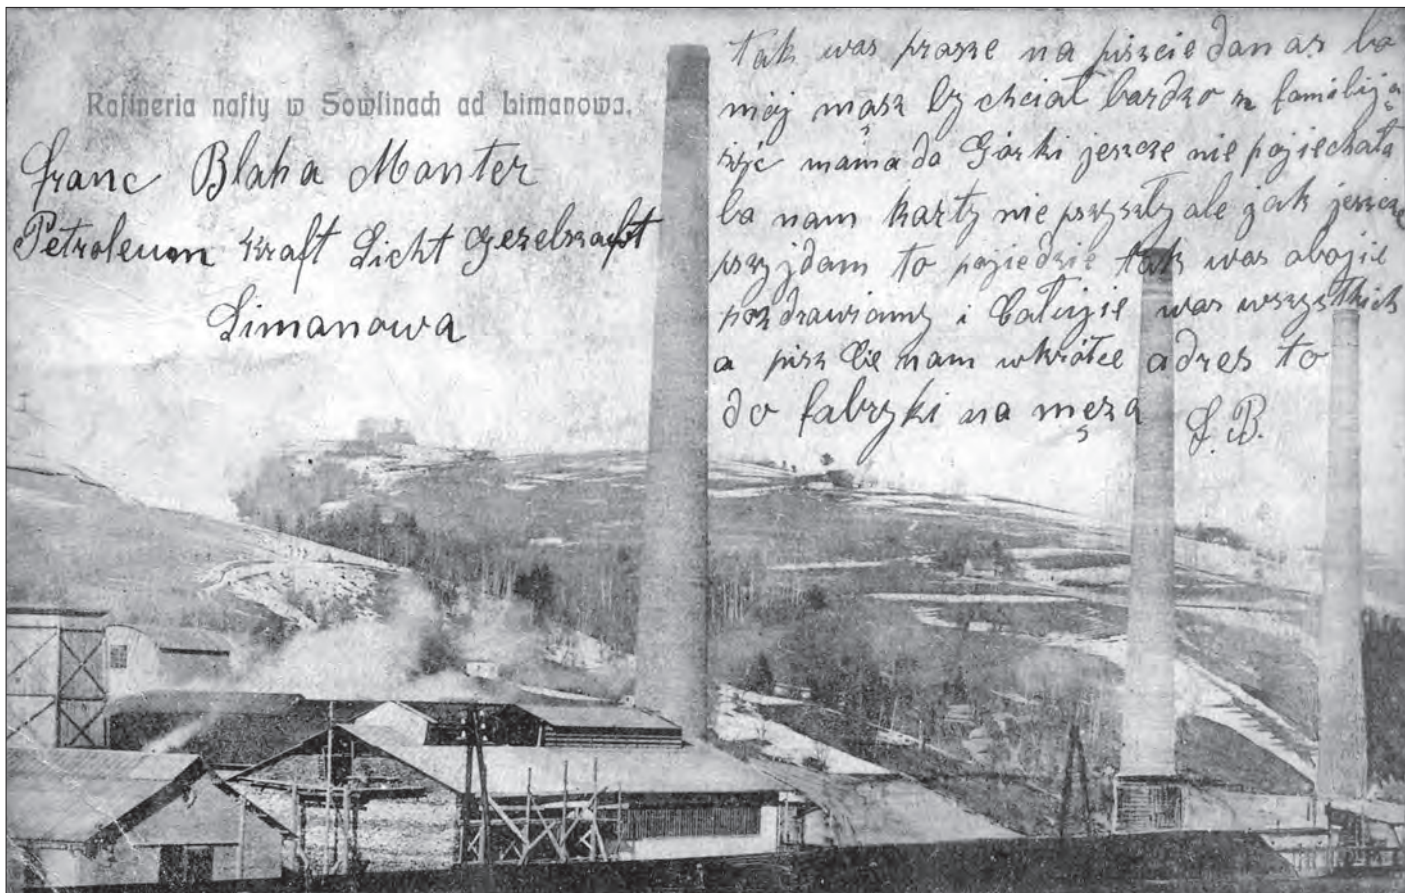 Rafineria nafty w Sowlinach ad Limanowa.
Franc Blaha Monter
Petroleum Kraft Licht Gezelszaft
Limanowa
tak was prasze na piszcie do nas bo
mój mąsz by chciał bardzo z familiją
żyć mama do Górki jeszcze nie pojiechała
bo nam karty nie przyszły ale jak jeszcze
przyjdam to pojiedzie tak was obojie
pozdrawiamy i całujie was wszystkich
a piszcie nam wkrótce adres to
do fabryki na męża
S. B.